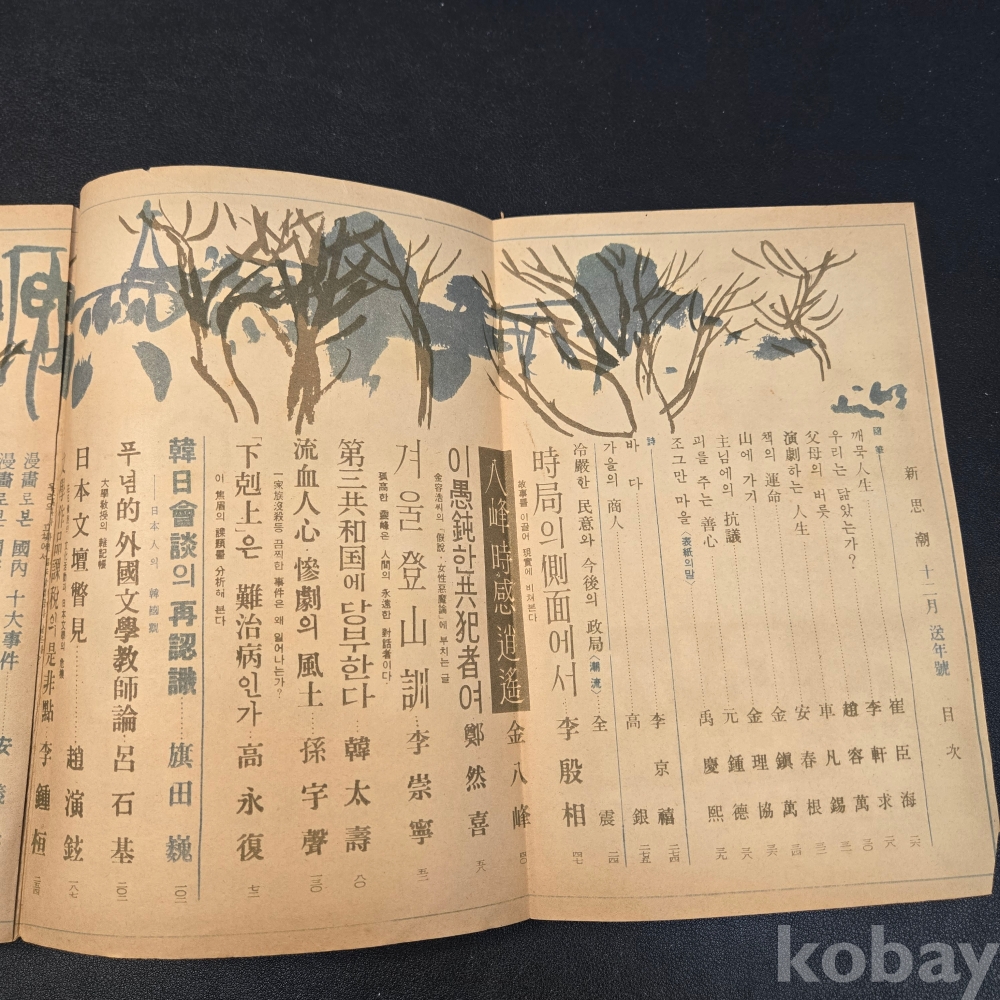 新思潮 十二月 送年號 目次
隨筆
깨묵人生 崔臣海
우리는 닮았는가? 李軒求
父母의 버릇 趙容萬
演劇하는 人生 車凡錫
책의 運命 安春根
山에 가기 金鎭萬
主님에의 抗議 金理協
괴를 주는 善心 元鍾德
조그만 마을〈表紙의말〉 禹慶熙
詩
바다 李京禧
가을의 商人 高銀
冷嚴한 民意와 今後의 政局〈潮流〉 全震
時局의 側面에서 李殷相 四七
故事를 이끌어 現實에 비쳐본다
八峰時感逍遙 金八峰 四〇
이 愚鈍한 共犯者여 鄭然喜 五八
金容浩씨의「假說·女性惡魔論」에 부치는 글
겨울 登山訓 李崇寧 五二
孤高한 靈峰은 人間의 永遠한 對話者이다
第三共和国에 당부한다 韓太壽 八〇
流血人心·慘劇의 風土 孫宇聲 一三〇
一家族沒殺等 끔찍한 事件은 왜 일어나는가?
「下剋上」은 難治病인가 高永復 七二
이 焦眉의 課題를 分析해 본다
韓日會談의 再認識 旗田巍 一〇二
日本人의 韓國觀
푸념的 外國文學教師論 呂石基 二〇二
大學敎授의 雜記帳
日本文壇瞥見 趙演鉉 一八七
李鍾桓
漫畫로본 國內 十大事件
kobay